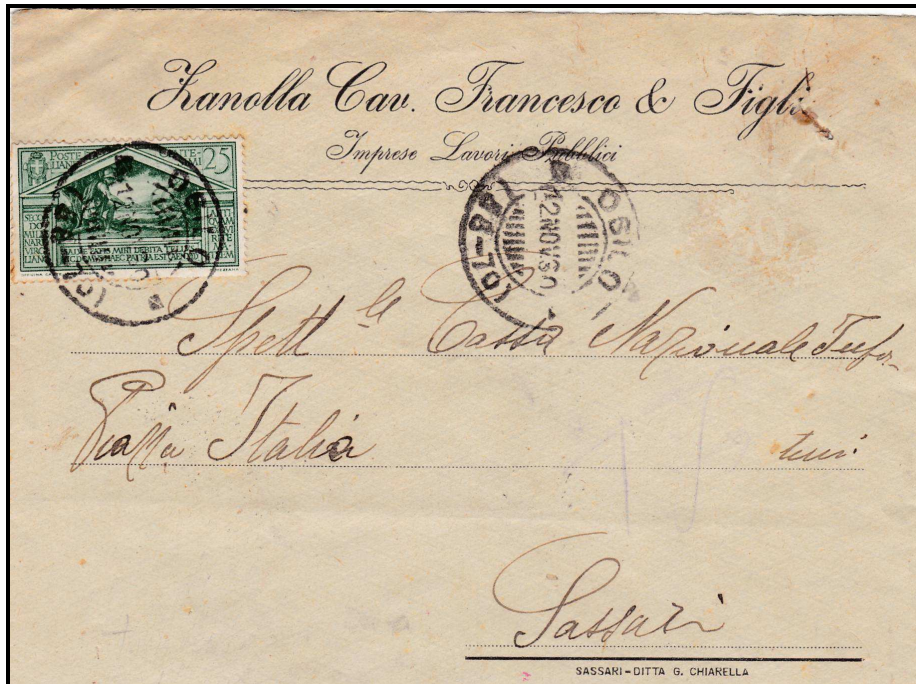 Zanolla Cav. Francesco & Figli
Imprese Lavori Pubblici
POSTE
25
OSILO
12 NOV. 30
(68-70)
Spett le Cassa Nazionale Infor-
tuni
Piazza Italia
Sassari
SASSARI - DITTA G. CHIARELLA